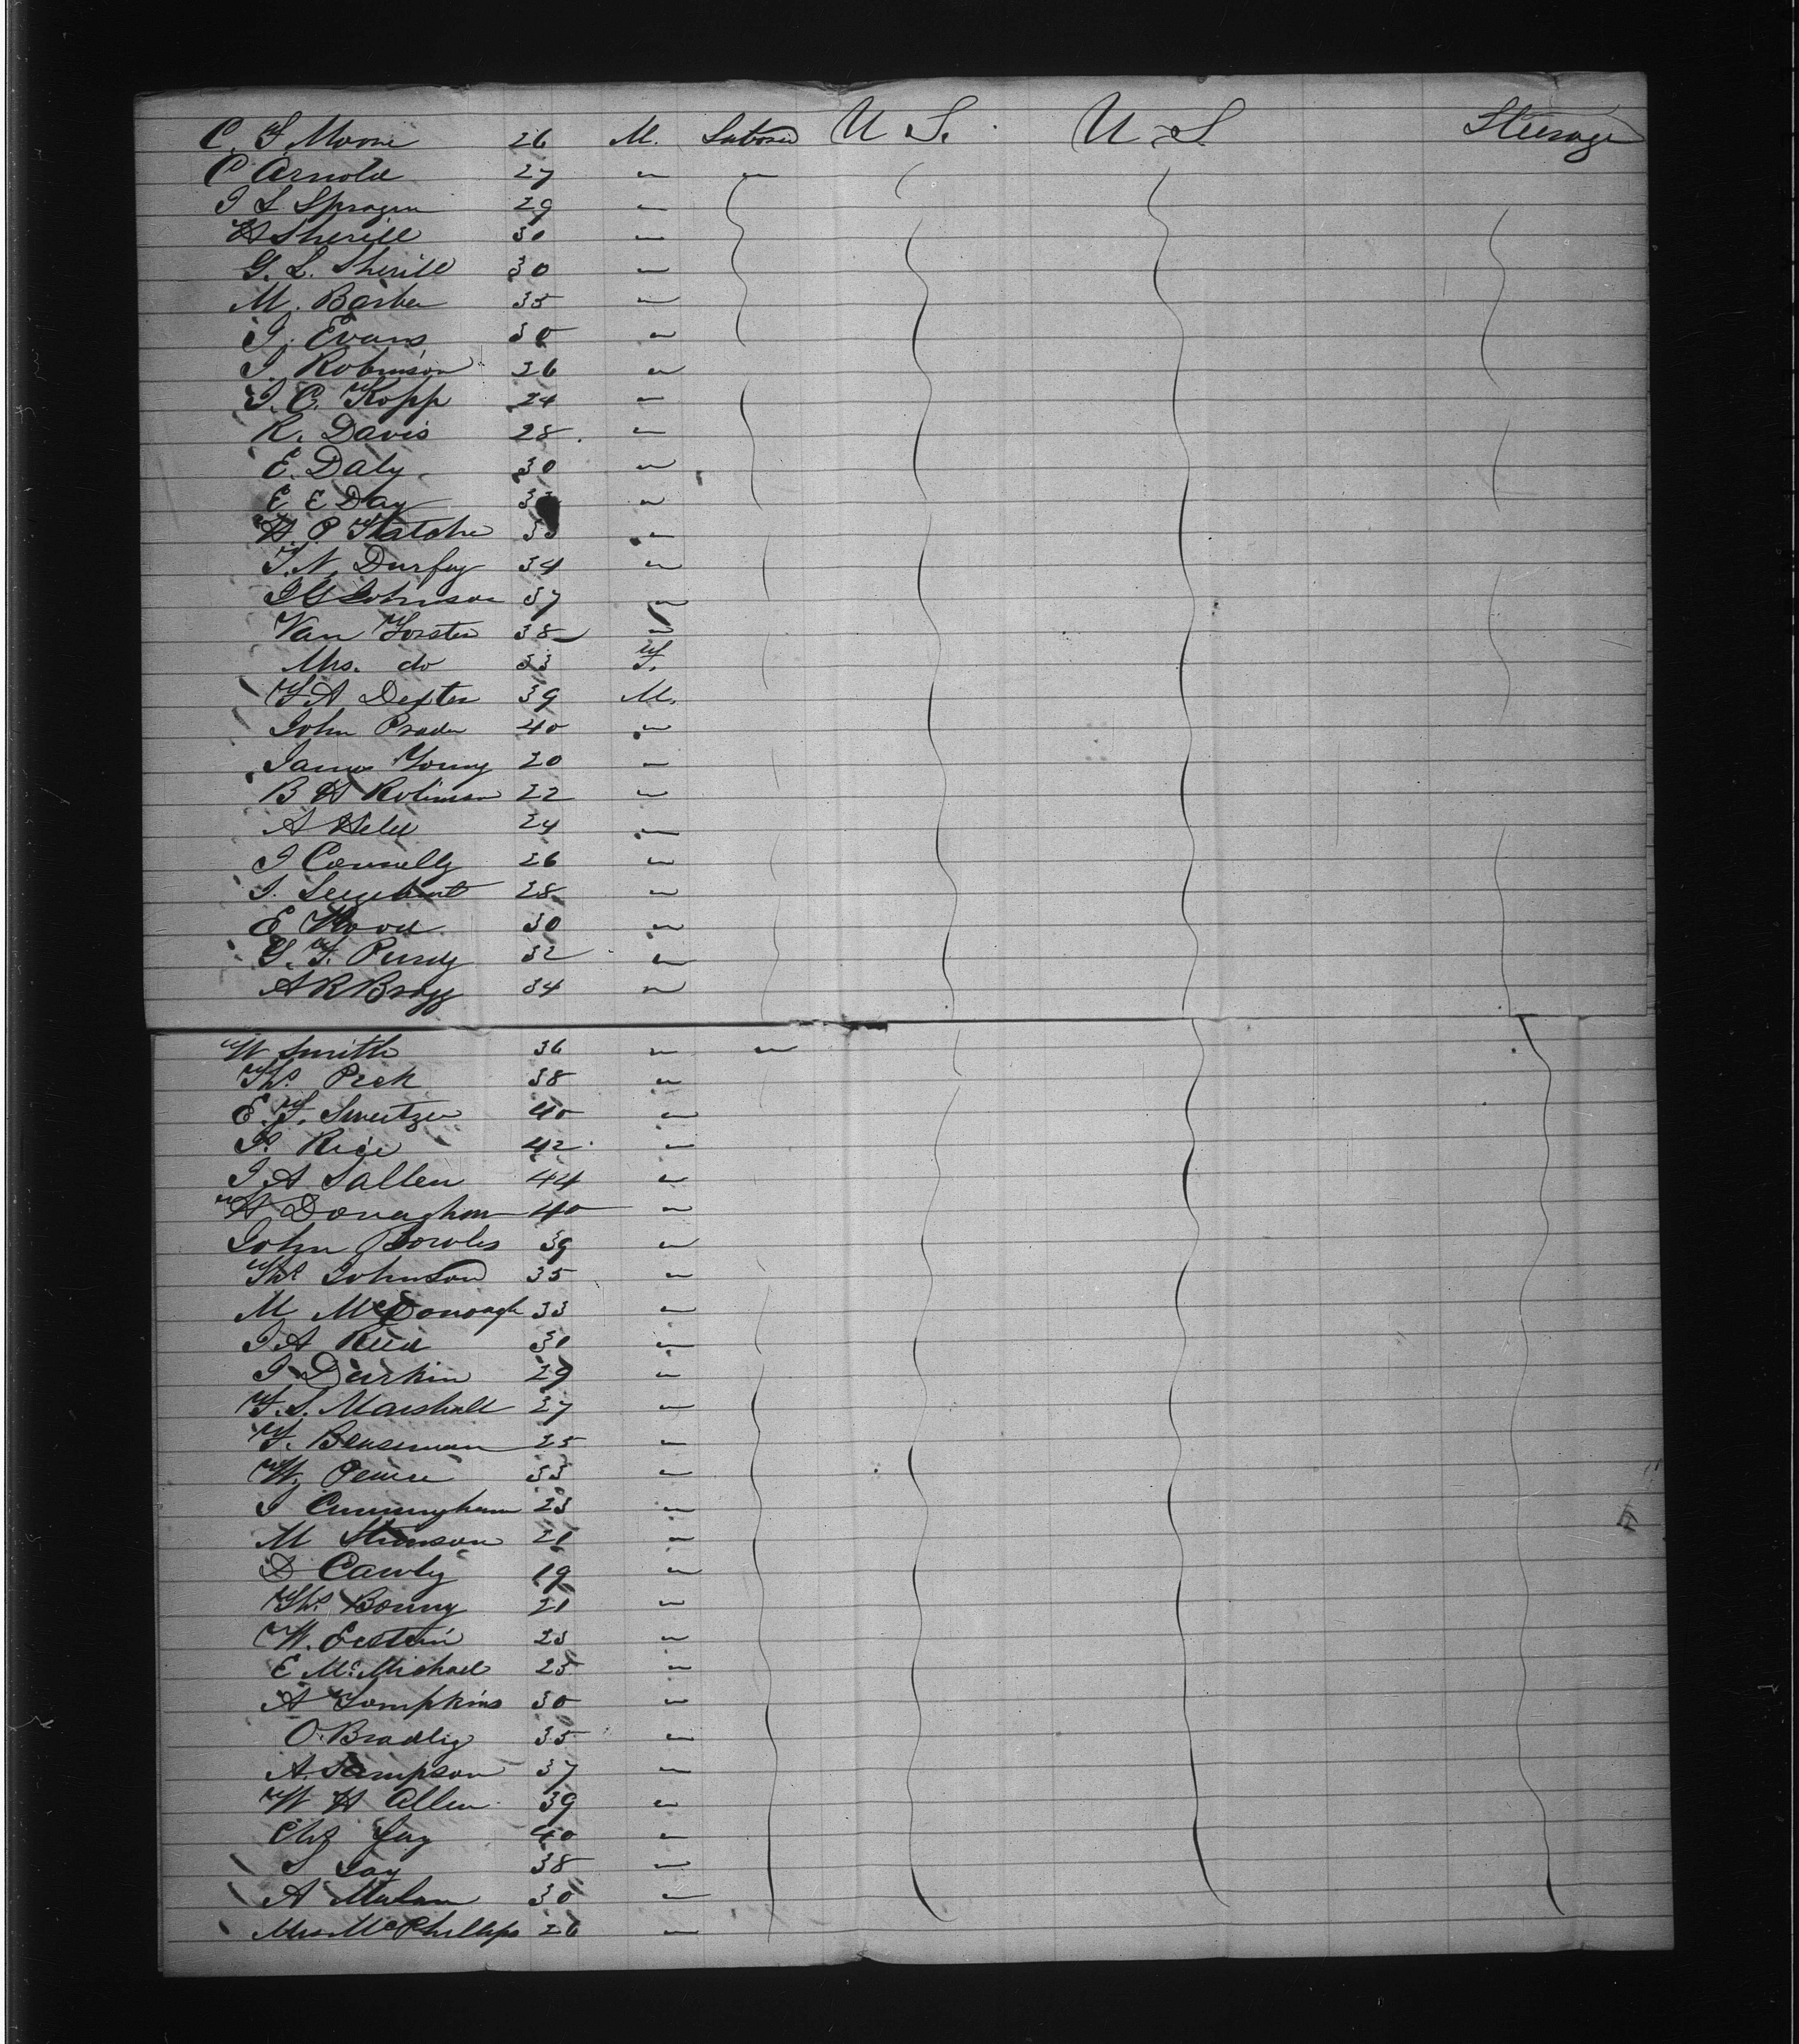 C. F. Moore 26 M. Laborer U S. U. S. Steerage
C Arnold 27 " "
J L Spragu 29 "
H Sherill 30 "
G. L. Sherill 30 "
M. Barber 35 "
J. Evans 30 "
J. Robinson 26 "
J. C. Kopp 24 "
R. Davis 28. "
E. Daly 30 "
E E Day "
H. P. Hatche 33 "
T. N. Durfey 34 "
J G Johnson 37 "
Van Forster 38 "
Mrs. do 33 F.
F A Dexter 39 M.
John Prader 40 "
James Young 20 "
B H Robinson 22 "
A Held 24 "
J Connelly 26 "
J. 28 "
E Wood 30 "
G. F. Purdy 32 "
A R Bragg 34 "
W Smith 36 " "
Ths. Peck 38 "
E. F. Sweitzer 40 "
P. Rice 42 "
J. A Sallen 44 "
H Donaghon 40 "
John Bowles 39 "
Ths. Johnson 35 "
M McDonough 33 "
J A Reed 30 "
J Durkin 29 "
F. S. Marshall 27 "
F. Benseman 25 "
W. 33 "
J Cunningham 23 "
M Stimson 21 "
D Cawly 19 "
Ths. Bonny 21 "
W. Ecstein 23 "
E McMichael 25 "
A Tompkins 30 "
O. Bradly 35 "
A. Sampson 37 "
W H Allen 39 "
Chs Jay 40 "
S Jay 38 "
A 30 "
Mrs McPhillips 26 "